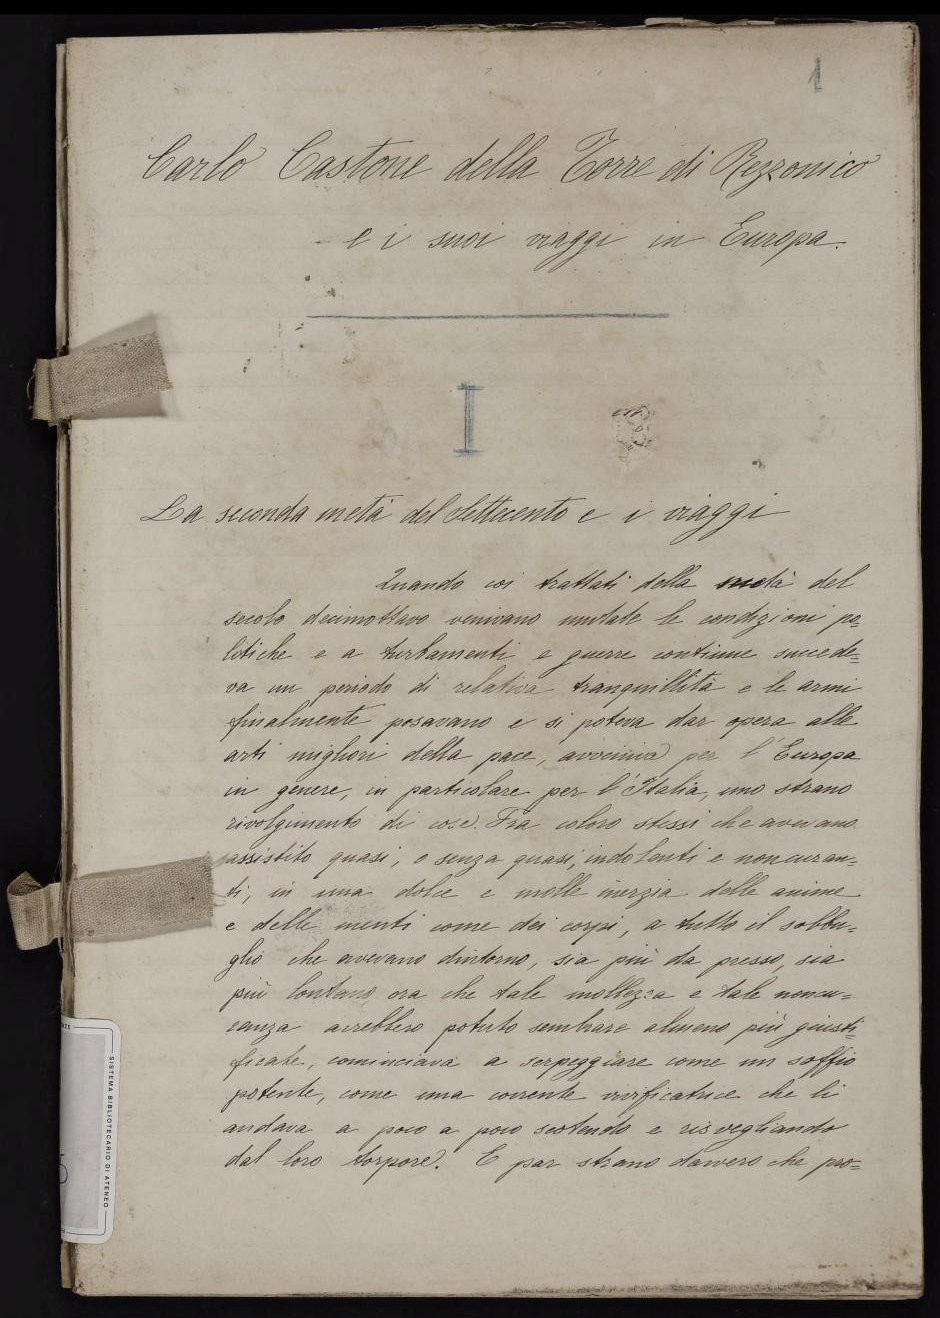 1
Carlo Castone della Torre di Rezzonico
e i suoi viaggi in Europa.
I
La seconda metà del Settecento e i viaggi
Quando coi trattati della metà del
secolo decimottavo venivano mutate le condizioni po=
litiche e a turbamenti e guerre continue succede=
va un periodo di relativa tranquillità e le armi
finalmente posavano e si poteva dar opera alle
arti migliori della pace, avveniva per l'Europa
in genere, in particolare per l'Italia, uno strano
rivolgimento di cose. Fra coloro stessi che avevano
assistito quasi, o senza quasi, indolenti e noncuran=
ti, in una dolce e molle inerzia delle anime
e delle menti come dei corpi, a tutto il sobbu=
glio che avevano dintorno, sia più da presso, sia
più lontano, ora che tale mollezza e tale noncu=
ranza avrebbero potuto sembrare almeno più giusti=
ficate, cominciava a serpeggiare come un soffio
potente, come una corrente vivificatrice che li
andava a poco a poco scotendo e risvegliando
dal loro torpore. E par strano davvero che pro=
SISTEMA BIBLIOTECARIO DI ATENEO
5